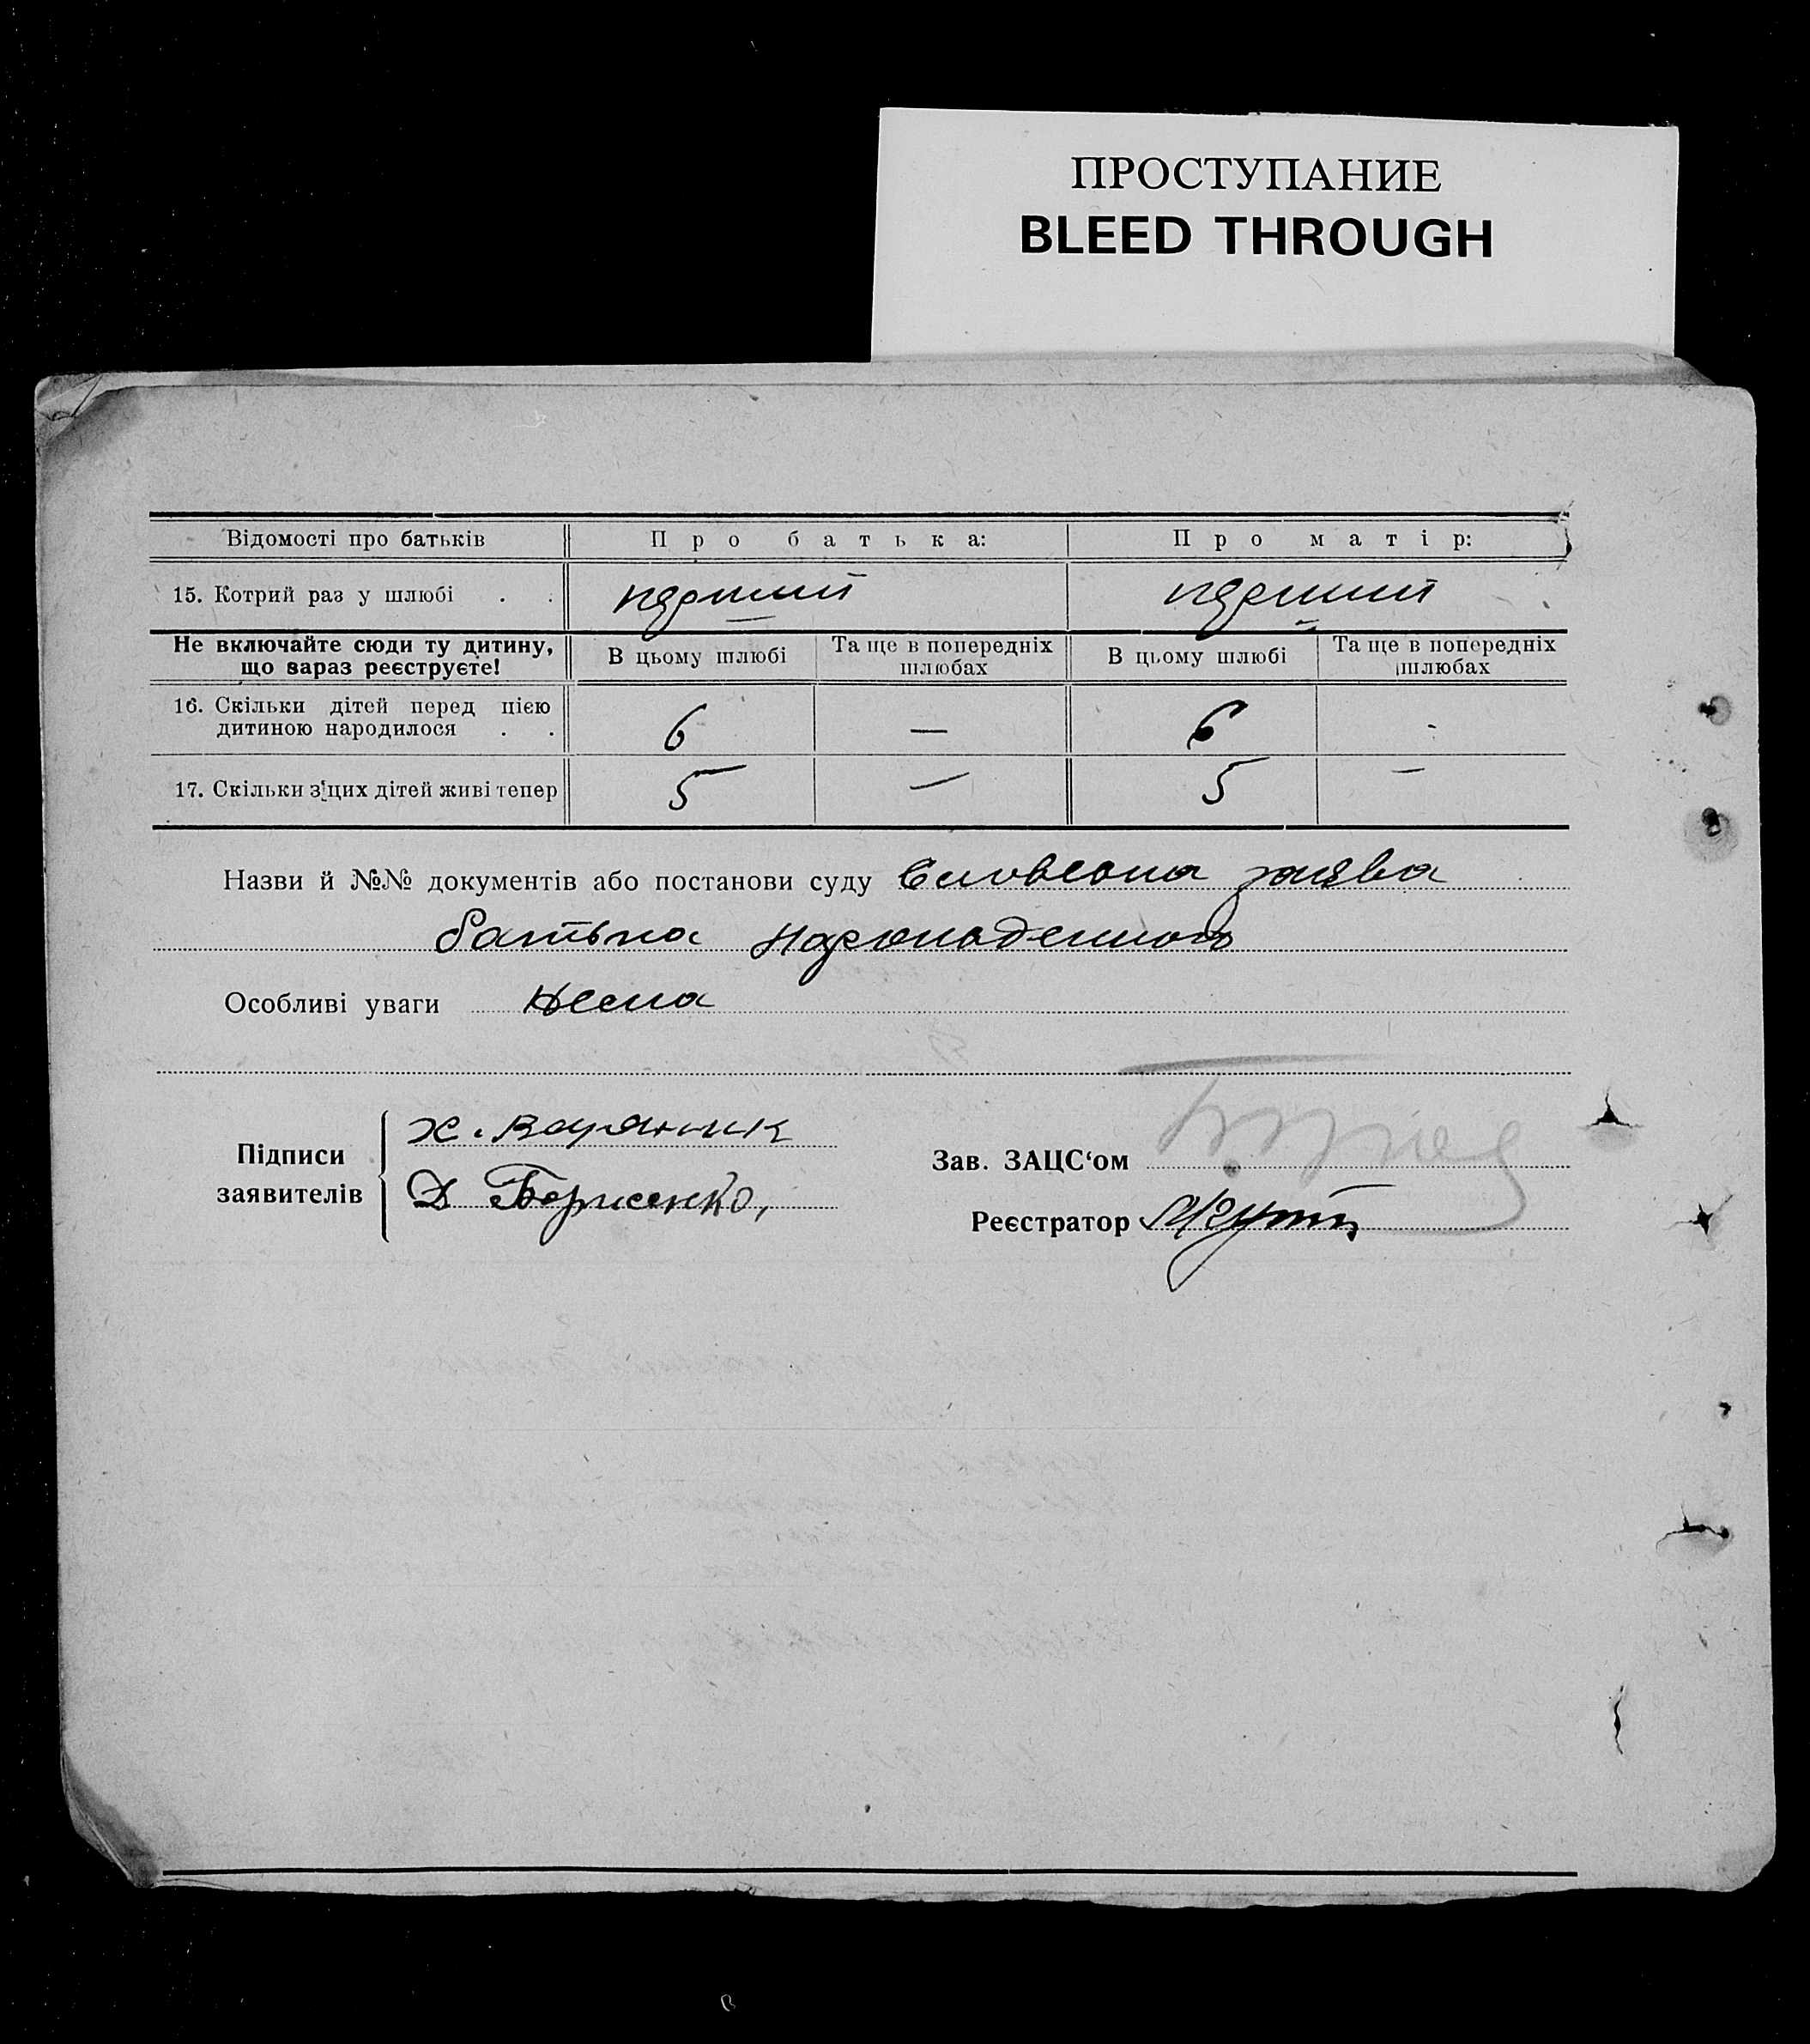 ПРОСТУПАНИЕ
BLEED THROUGH
Відомості про батьків П р о б а т ь к а: П р о м а т і р:
15. Котрий раз у шлюбі . . перший перший
Не включайте сюди ту дитину, що зараз реєструєте! В цьому шлюбі Та ще в попередніх шлюбах В цьому шлюбі Та ще в попередніх шлюбах
16. Скільки дітей перед цією дитиною народилося . . 6 — 6 -
17. Скільки з цих дітей живі тепер 5 — 5 —
Назви й №№ документів або постанови суду Словесна заява
батька народженного
Особливі уваги Нема
Підписи заявителів
Х.
Д Борисенко,
Зав. ЗАЦС‘ом
Реєстратор